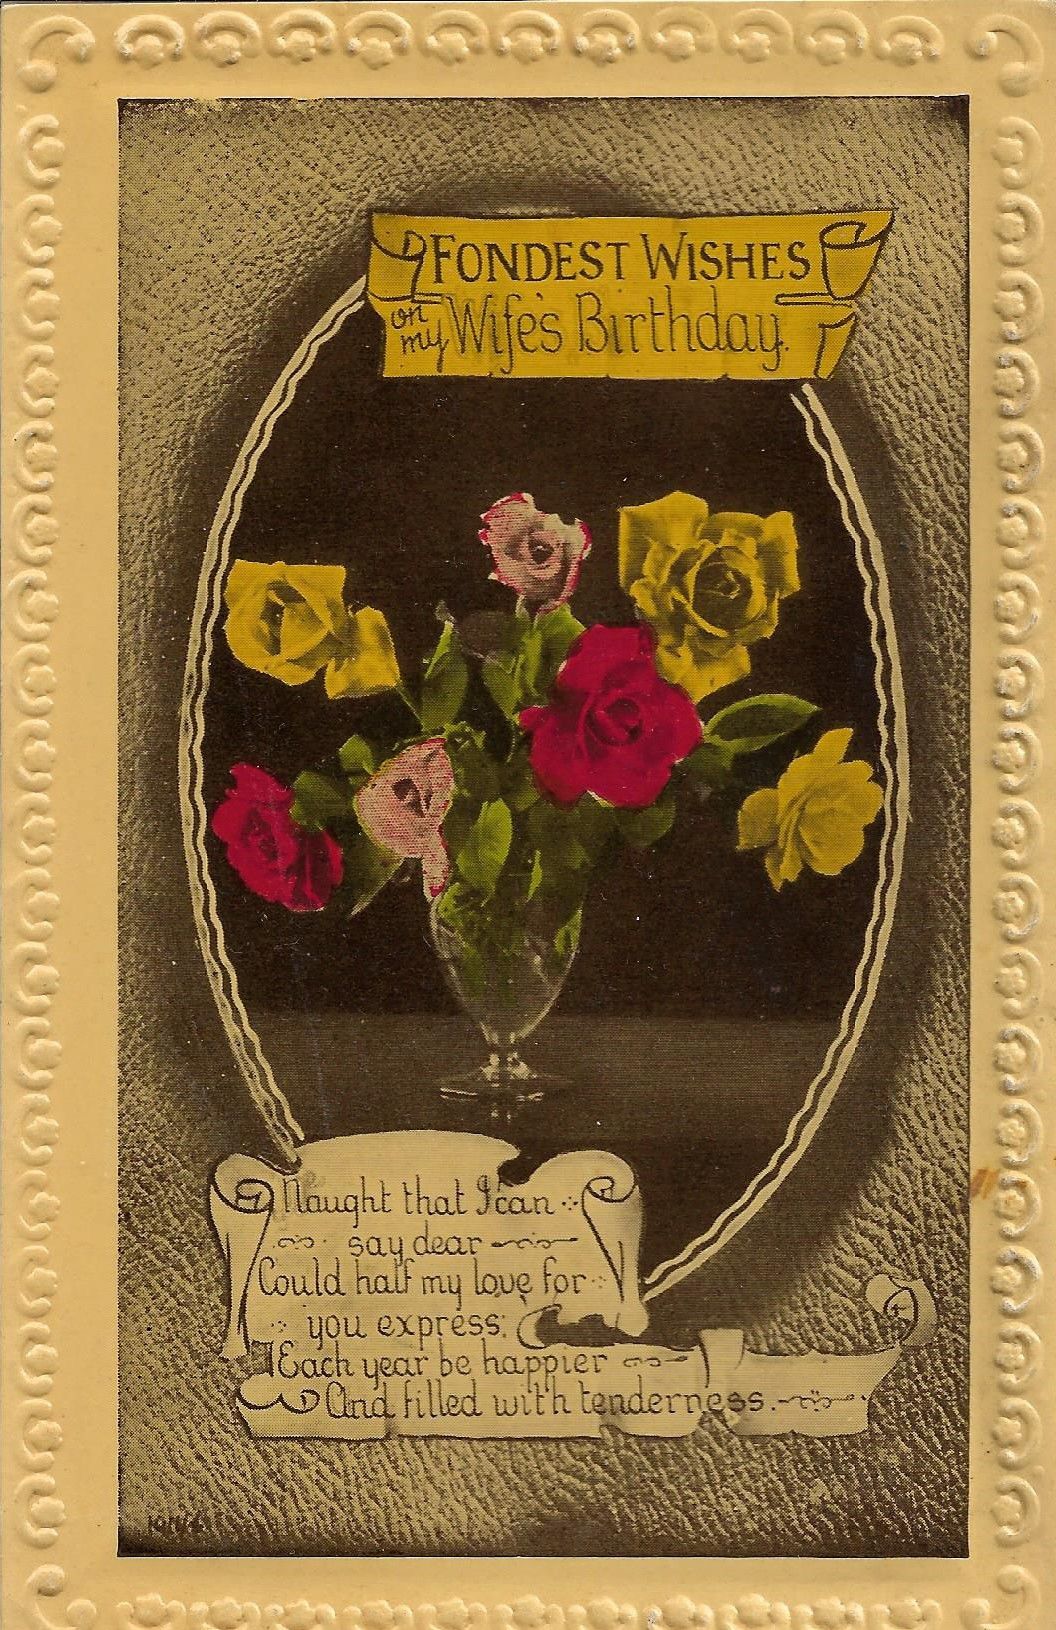 FONDEST WISHES
on my Wife's Birthday.
Naught that I can
say dear
Could half my love for
you express:
Each year be happier
And filled with tenderness.